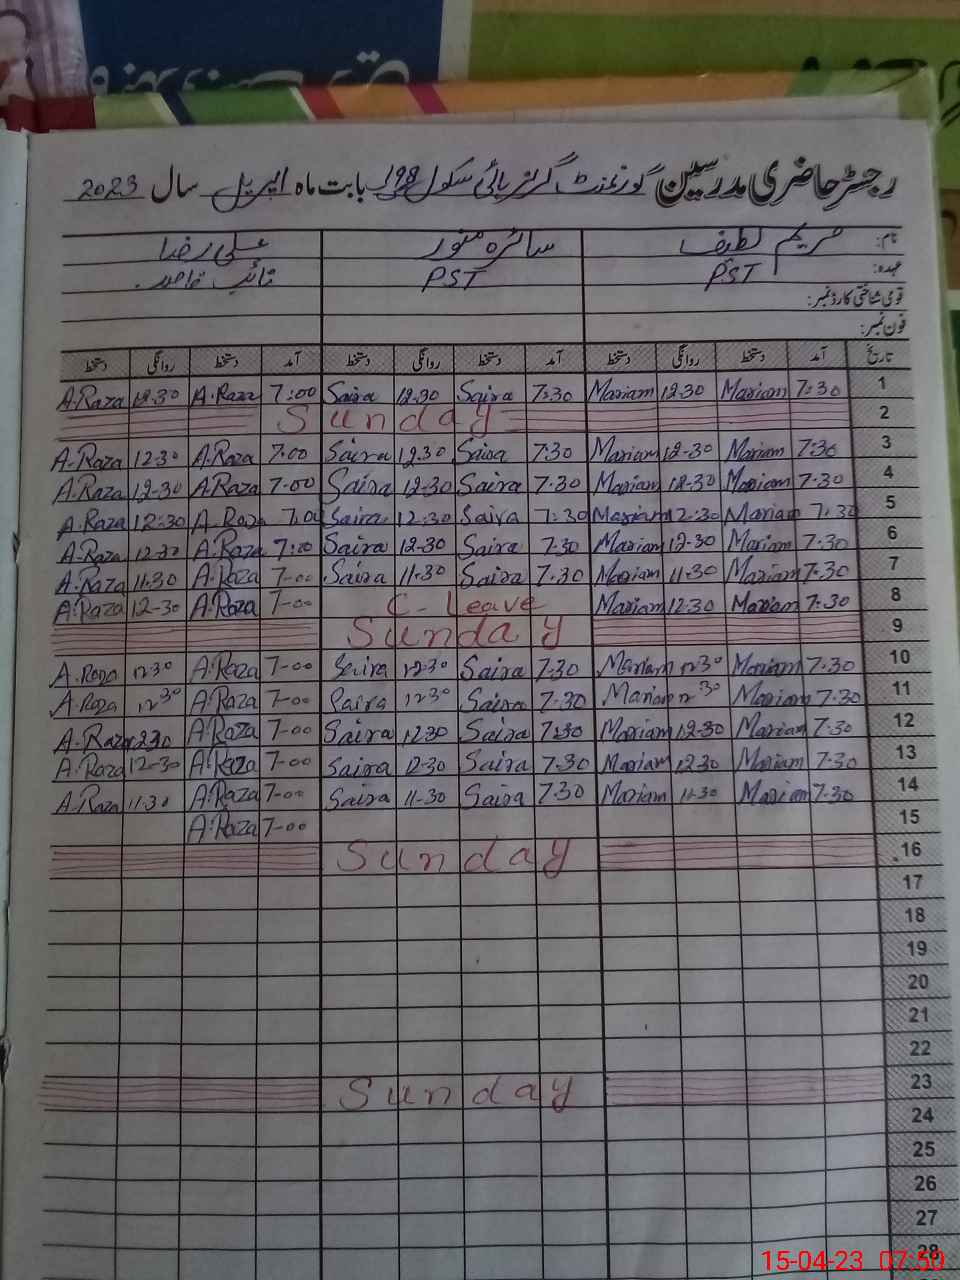 رجسٹر حاضری مدرسین گورنمنٹ گرلز ہائی سکول 198 بابت ماہ اپریل سال 2023
نام: مریم لطیف سائرہ منور علی رضا
عہدہ: PST PST نائب قاصد
قومی شناختی کارڈ نمبر:
فون نمبر:
تاریخ آمد دستخط روانگی دستخط آمد دستخط روانگی دستخط آمد دستخط روانگی دستخط
A.Raza 12.30 A.Raza 7:00 Saira 12.30 Saira 7:30 Mariam 12.30 Mariam 7:30 1
Sunday 2
A.Raza 12.30 A.Raza 7.00 Saira 12.30 Saira 7.30 Mariam 12-30 Mariam 7.30 3
A.Raza 12-30 A.Raza 7-00 Saira 12-30 Saira 7.30 Mariam 12-30 Mariam 7.30 4
A.Raza 12:30 A.Raza 7.00 Saira 12:30 Saira 7:30 Mariam 12:30 Mariam 7:30 5
A.Raza 12-30 A.Raza 7:00 Saira 12-30 Saira 7.30 Mariam 12-30 Mariam 7.30 6
A.Raza 11.30 A.Raza 7-00 Saira 11-30 Saira 7.30 Mariam 11-30 Mariam 7.30 7
A.Raza 12-30 A.Raza 7-00 C-Leave Mariam 12.30 Mariam 7:30 8
Sunday 9
A.Raza 12 30 A.Raza 7-00 Saira 12-30 Saira 7.30 Mariam 12 30 Mariam 7.30 10
A.Raza 12 30 A.Raza 7-00 Saira 12 30 Saira 7.30 Mariam 12 30 Mariam 7.30 11
A.Raza 1230 A.Raza 7-00 Saira 12.30 Saira 7:30 Mariam 12-30 Mariam 7.30 12
A.Raza 12-30 A.Raza 7-00 Saira 12-30 Saira 7.30 Mariam 12.30 Mariam 7.30 13
A.Raza 11-30 A.Raza 7-00 Saira 11-30 Saira 7.30 Mariam 11-30 Mariam 7.30 14
A.Raza 7-00 15
Sunday 16
17
18
19
20
21
22
Sunday 23
24
25
26
27
28
15-04-23 07:50